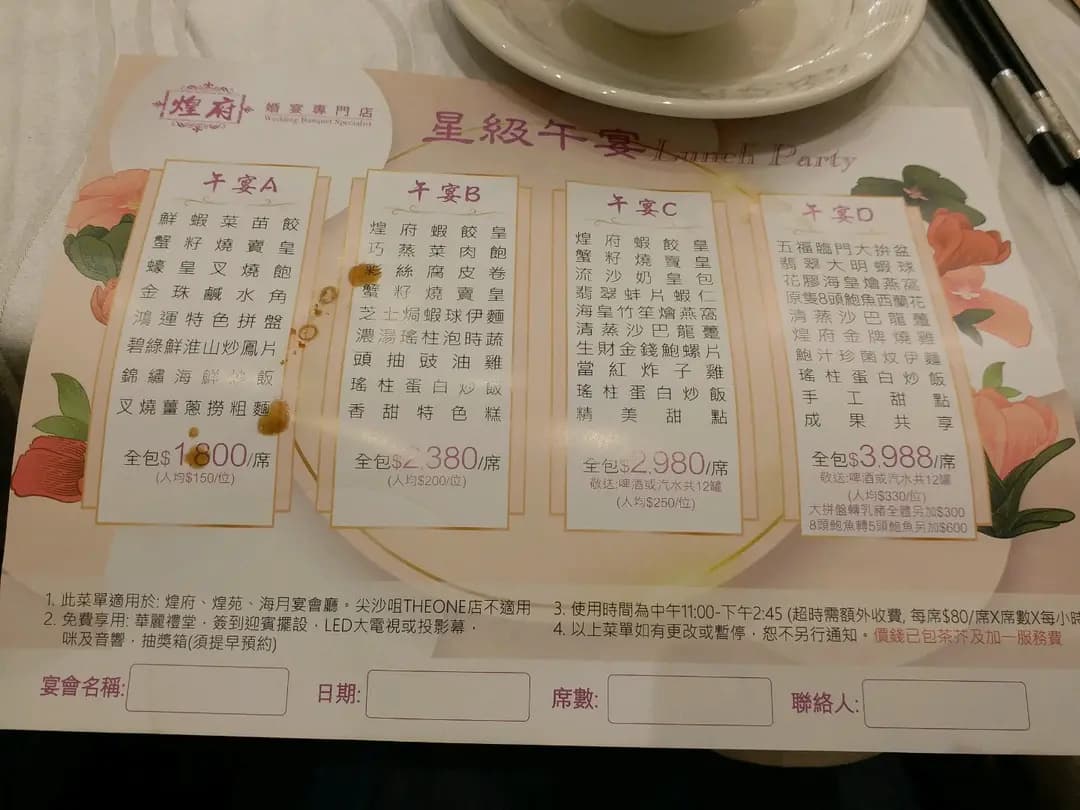 煌府
婚宴專門店
Wedding Banquet Specialist
星級午宴 Lunch Party
午宴A
鮮蝦菜苗餃
蟹籽燒賣皇
蠔皇叉燒飽
金珠鹹水角
鴻運特色拼盤
碧綠鮮淮山炒鳳片
錦繡海鮮炒飯
叉燒薑蔥撈粗麵
全包$1,800/席
(人均$150/位)
午宴B
煌府蝦餃皇
巧蒸菜肉飽
彩絲腐皮卷
蟹籽燒賣皇
芝士焗蝦球伊麵
濃湯瑤柱泡時蔬
頭抽豉油雞
瑤柱蛋白炒飯
香甜特色糕
全包$2,380/席
(人均$200/位)
午宴C
煌府蝦餃皇
蟹籽燒賣皇
流沙奶皇包
翡翠蚌片蝦仁
海皇竹笙燴燕窩
清蒸沙巴龍躉
生財金錢鮑螺片
當紅炸子雞
瑤柱蛋白炒飯
精美甜點
全包$2,980/席
敬送:啤酒或汽水共12罐
(人均$250/位)
午宴D
五福臨門大拼盆
翡翠大明蝦球
花膠海皇燴燕窩
原隻8頭鮑魚西蘭花
清蒸沙巴龍躉
煌府金牌燒雞
鮑汁珍菌炆伊麵
瑤柱蛋白炒飯
手工甜點
成果共享
全包$3,988/席
敬送:啤酒或汽水共12罐
(人均$330/位)
大拼盤轉乳豬全體另加$300
8頭鮑魚轉5頭鮑魚另加$600
1. 此菜單適用於: 煌府、煌苑、海月宴會廳。尖沙咀THEONE店不適用
2. 免費享用: 華麗禮堂，簽到迎賓擺設，LED大電視或投影幕，
咪及音響，抽獎箱(須提早預約)
3. 使用時間為中午11:00-下午2:45 (超時需額外收費, 每席$80/席X席數X每小時
4. 以上菜單如有更改或暫停，恕不另行通知。價錢已包茶芥及加一服務費
宴會名稱:
日期:
席數:
聯絡人: